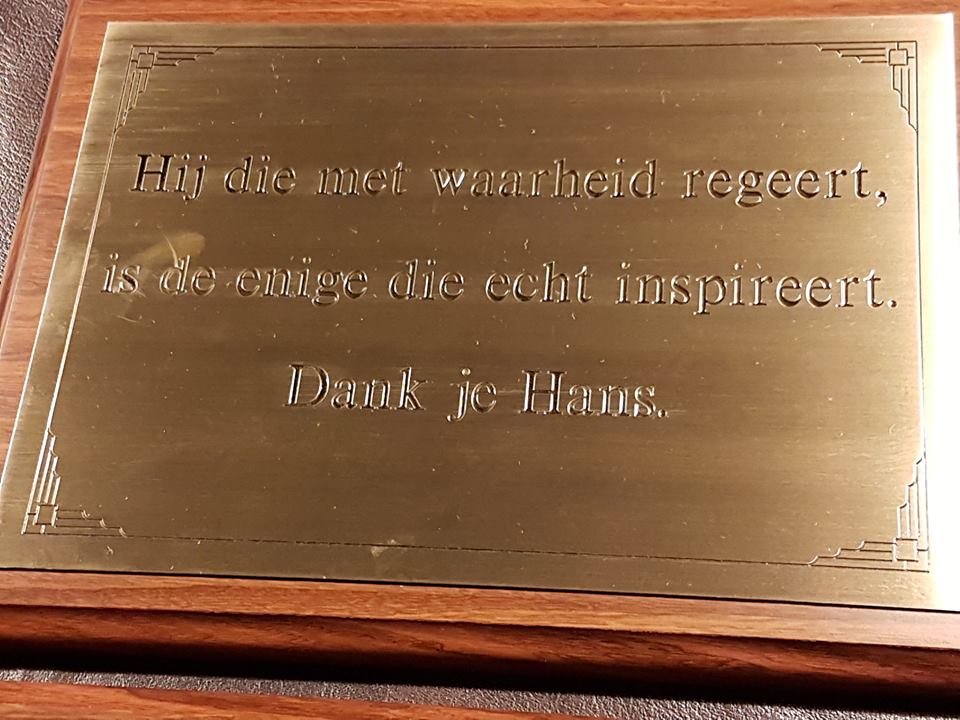 Hij die met waarheid regeert,
is de enige die echt inspireert.
Dank je Hans.